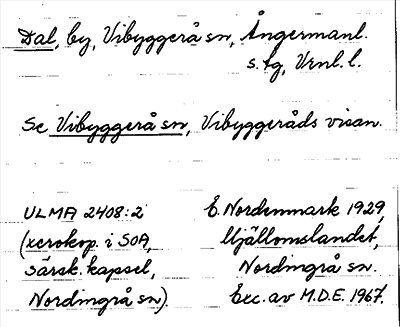 Dal, by, Vibyggerå sn, Ångermanl.
s. tg, Vnl. l.
Se Vibyggerå sn, Vibyggeråds visan.
ULMA 2408:2
(xerokop. i SOA,
särsk. kapsel,
Nordingrå sn).
E. Nordenmark 1929,
Mjällomslandet,
Nordingrå sn.
Exc. av M.D.E. 1967.